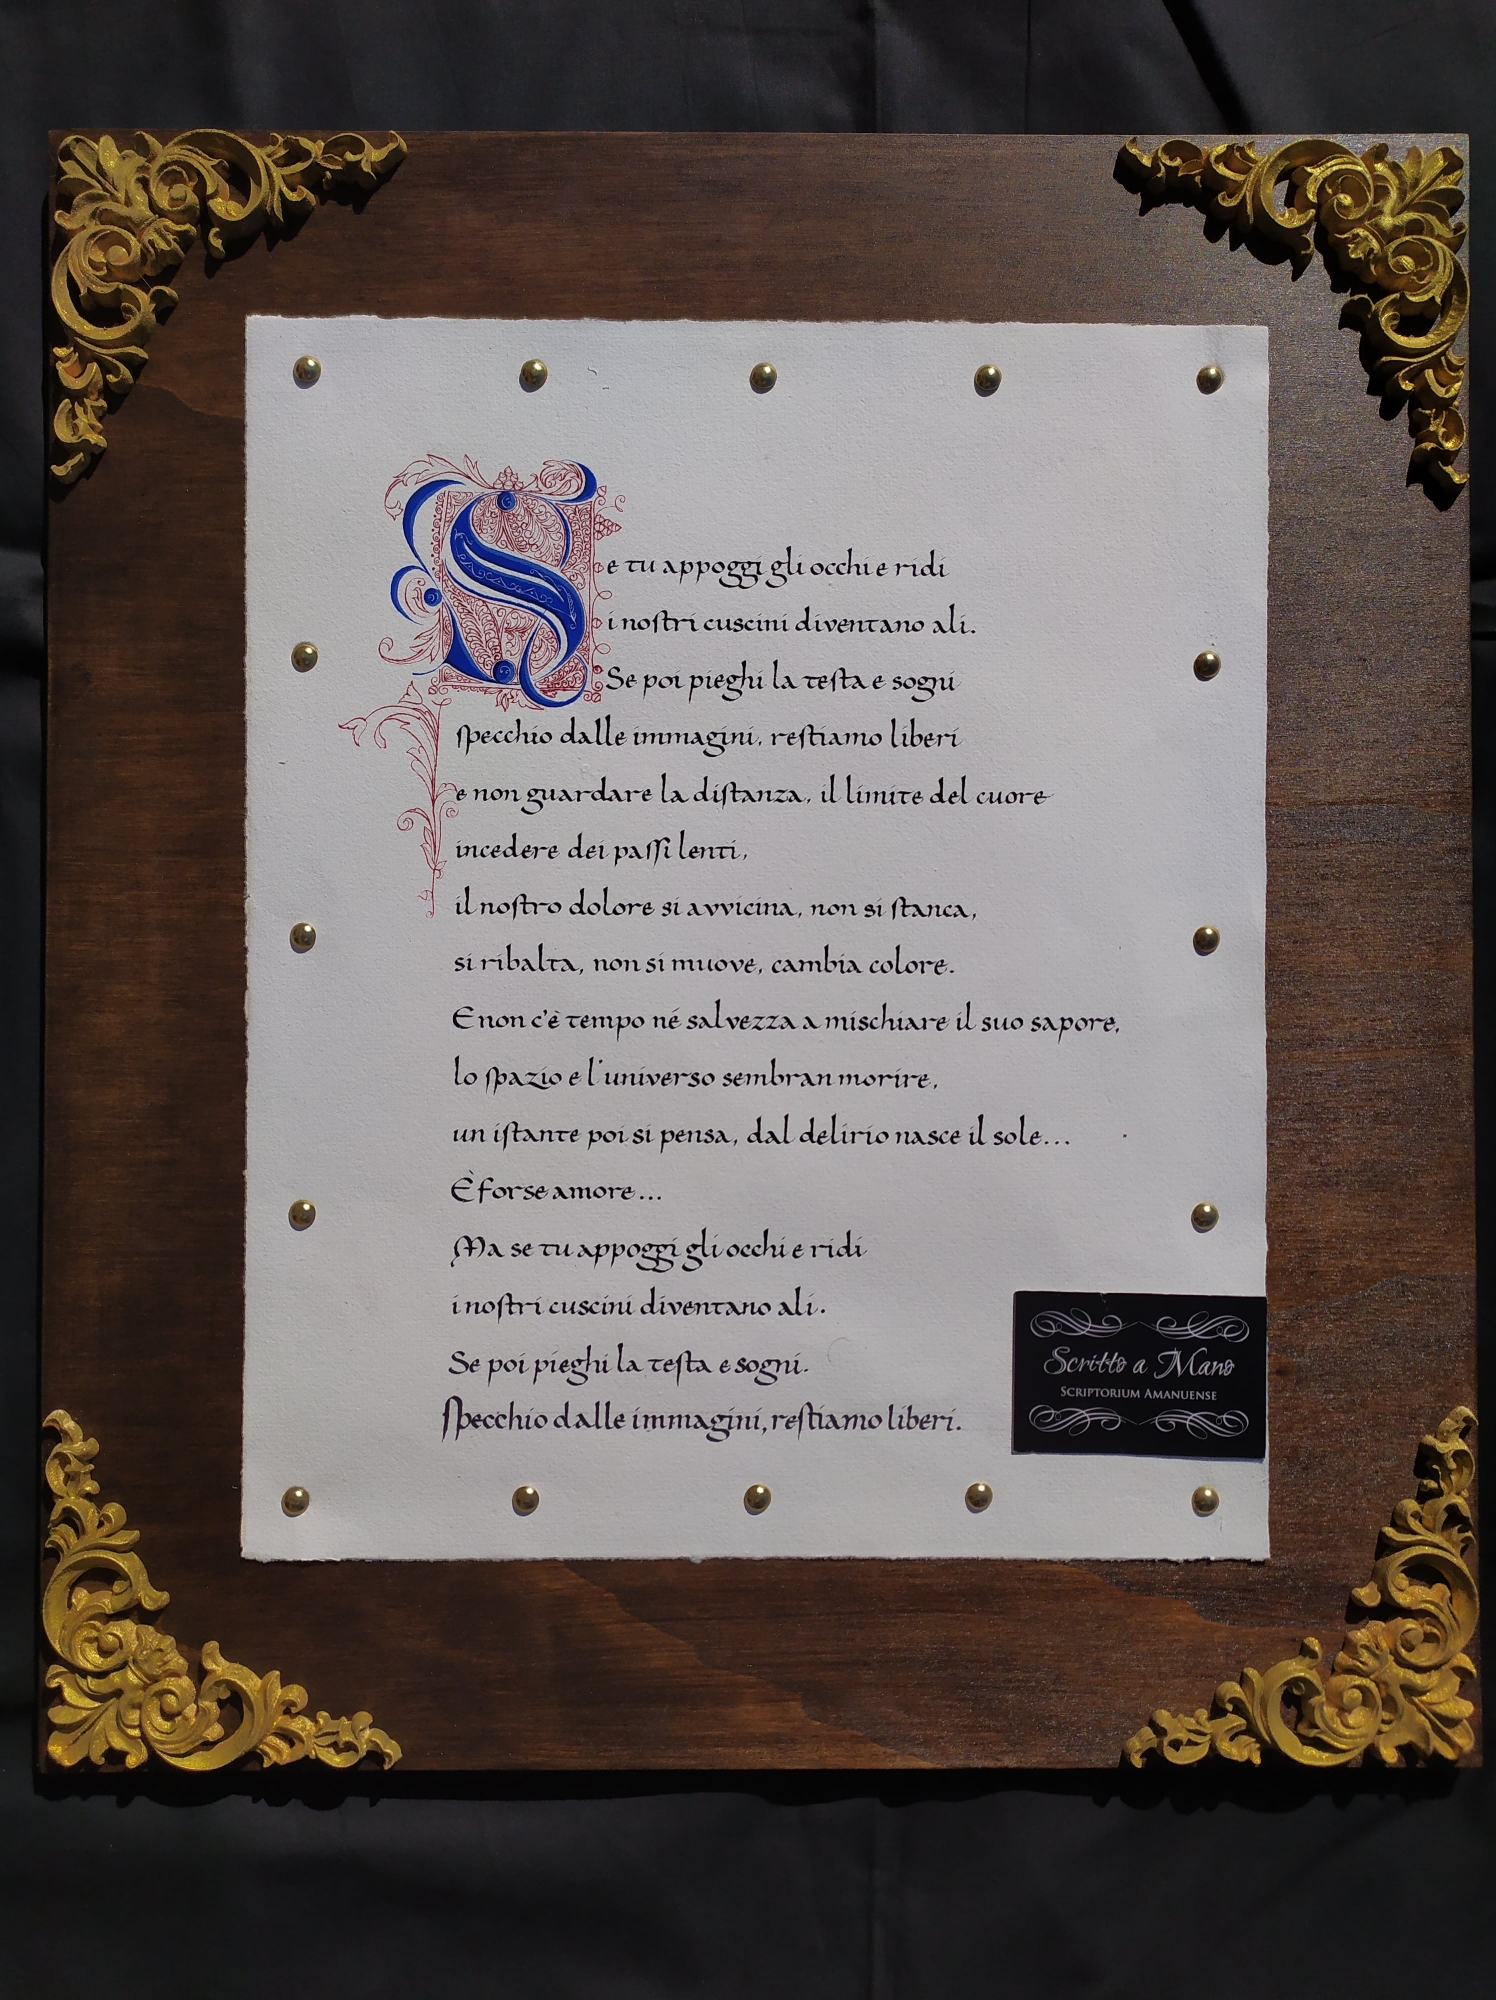 Se tu appoggi gli occhi e ridi
i nostri cuscini diventano ali.
Se poi pieghi la testa e sogni
specchio dalle immagini, restiamo liberi
e non guardare la distanza, il limite del cuore
incedere dei passi lenti,
il nostro dolore si avvicina, non si stanca,
si ribalta, non si muove, cambia colore.
E non c'è tempo né salvezza a mischiare il suo sapore,
lo spazio e l'universo sembran morire,
un istante poi si pensa, dal delirio nasce il sole...
È forse amore...
Ma se tu appoggi gli occhi e ridi
i nostri cuscini diventano ali.
Se poi pieghi la testa e sogni.
Specchio dalle immagini, restiamo liberi.
Scritto a Mano
Scriptorium Amanuense